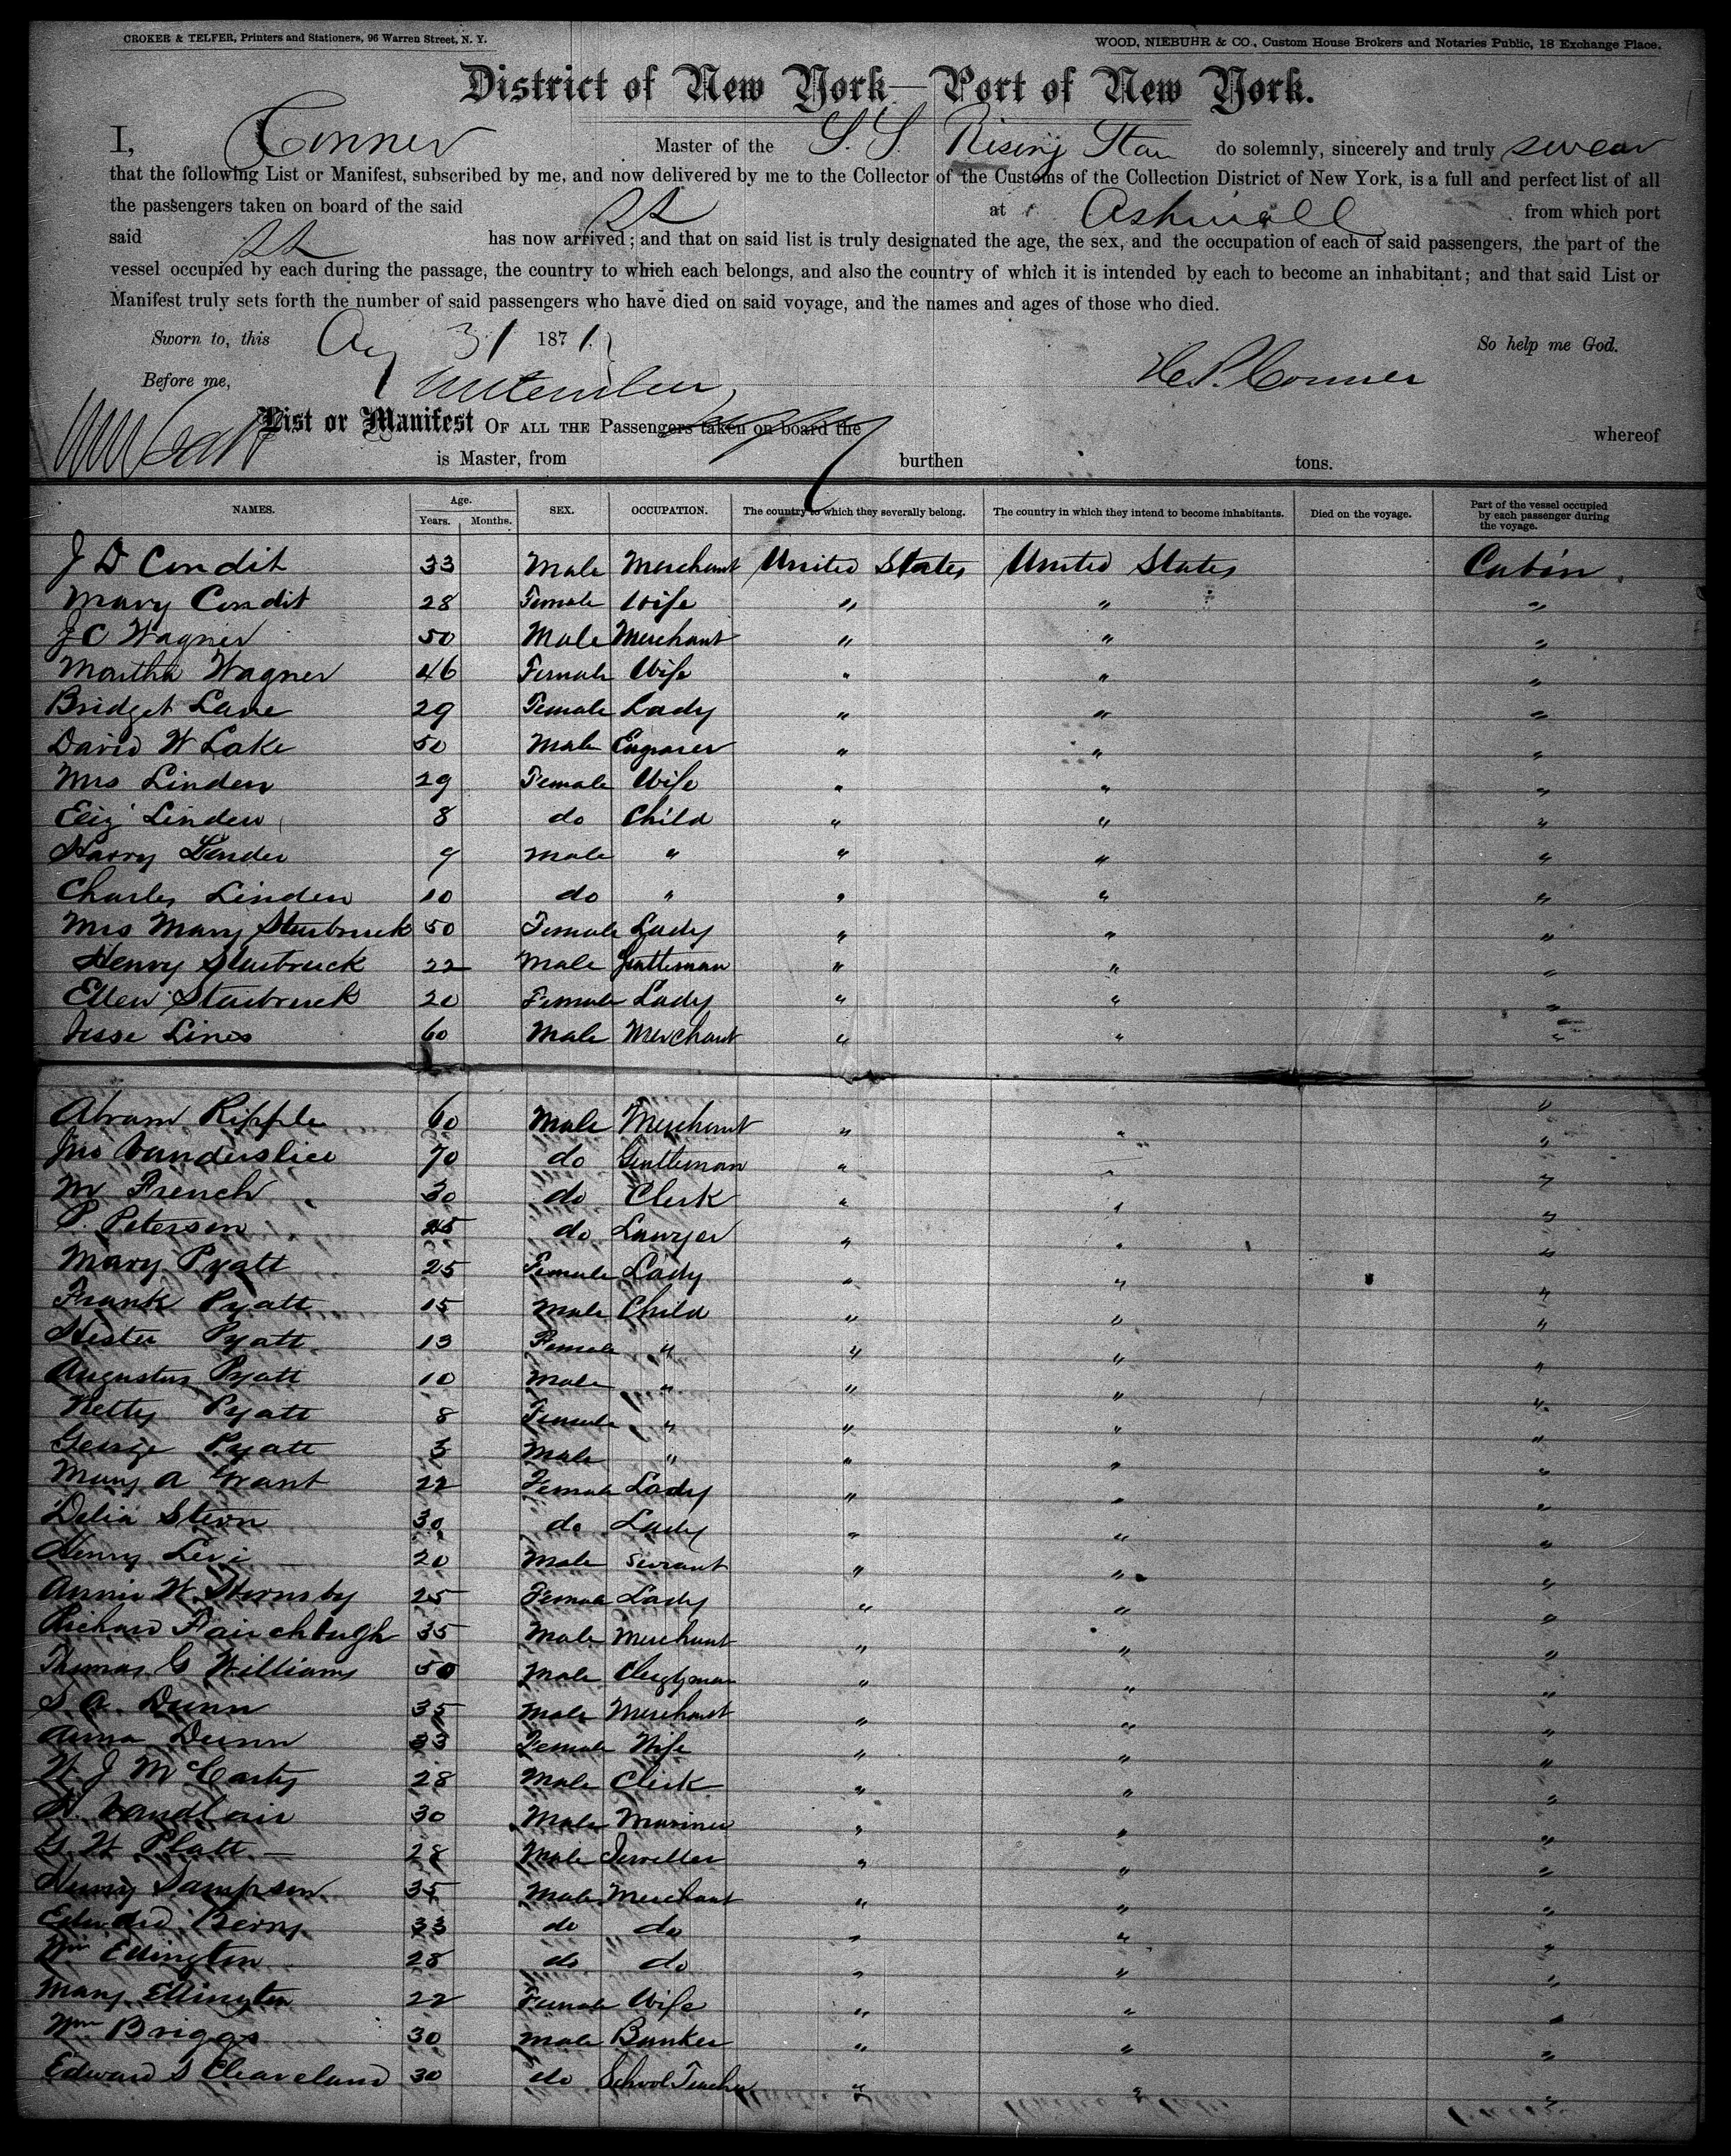 CROKER & TELFER, Printers and Stationers, 96 Warren Street, N. Y. WOOD, NIEBUHR & CO., Custom House Brokers and Notaries Public, 18 Exchange Place.
District of New York—Port of New York.
I, Conner Master of the S. S. Rising Star do solemnly, sincerely and truly swear
that the following List or Manifest, subscribed by me, and now delivered by me to the Collector of the Customs of the Collection District of New York, is a full and perfect list of all
the passengers taken on board of the said SS at Aspinwall from which port
said SS has now arrived; and that on said list is truly designated the age, the sex, and the occupation of each of said passengers, the part of the
vessel occupied by each during the passage, the country to which each belongs, and also the country of which it is intended by each to become an inhabitant; and that said List or
Manifest truly sets forth the number of said passengers who have died on said voyage, and the names and ages of those who died.
Sworn to, this Aug 31 1871. So help me God.
Before me, Conner
List or Manifest OF ALL THE Passengers taken on board the whereof
is Master, from burthen tons.
NAMES. Age. Years. Months. SEX. OCCUPATION. The country to which they severally belong. The country in which they intend to become inhabitants. Died on the voyage. Part of the vessel occupied by each passenger during the voyage.
J D Condit 33 Male Merchant United States United States Cabin
Mary Condit 28 Female Wife " " "
J C Wagner 50 Male Merchant " " "
Martha Wagner 46 Female Wife " " "
Bridget Lane 29 Female Lady " " "
David W Lake 50 Male Engraver " " "
Mrs Linden 29 Female Wife " " "
Eliz Linden 8 do Child " " "
Harry Linden 9 Male " " " "
Charles Linden 10 do " " " "
Mrs Mary Starbruck 50 Female Lady " " "
Henry Starbruck 22 Male Gentleman " " "
Ellen Starbruck 20 Female Lady " " "
Jesse Lines 60 Male Merchant " " "
Abram Ripple 60 Male Merchant " " "
Jno Vanderslice 70 do Gentleman " " "
M French 30 do Clerk " " "
P. Peterson 45 do Lawyer " " "
Mary Pyatt 25 Female Lady " " "
Frank Pyatt 15 Male Child " " "
Hester Pyatt 13 Female " " " "
Augustus Pyatt 10 Male " " " "
Netty Pyatt 8 Female " " " "
George Pyatt 3 Male " " " "
Mary A Grant 22 Female Lady " " "
Delia Stern 30 do Lady " " "
Henry Levi 20 Male Servant " " "
Annie W. Hornsby 25 Female Lady " " "
Richard Fairchbugh 35 Male Merchant " " "
Thomas G Williams 50 Male Clergyman " " "
S. A. Dunn 35 Male Merchant " " "
Anna Dunn 33 Female Wife " " "
W J McCarty 28 Male Clerk " " "
30 Male Mariner " " "
G. W Platt 28 Male Jeweller " " "
Henry Sampson 35 Male Merchant " " "
Edward Berry 33 do do " " "
Wm Ellington 28 do do " " "
Mary Ellington 22 Female Wife " " "
Wm Briggs 30 Male Banker " " "
Edward S Cleaveland 30 do School Teacher " " "